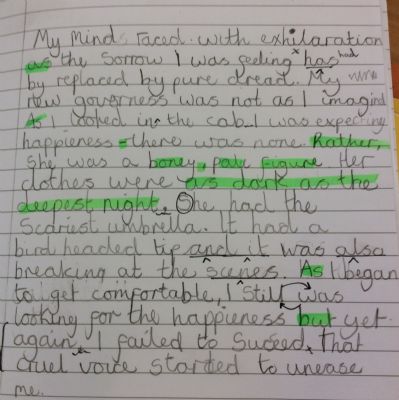 My Minds raced with exhilaration
as the sorrow I was feeling has had
by replaced by pure dread. My
new governess was not as I imagind
As I looked in the cab I was expecting
happieness - there was none. Rather,
She was a boney, pale figure. Her
clothes were as dark as the
deepest night. She had the
Scariest umbrella. It had a
bird headed tip and it was also
breaking at the scenes. As I began
to get comfortable, I still was
looking for the happieness but yet
again, I failed to Suceed, that
cruel voice started to unease
me.